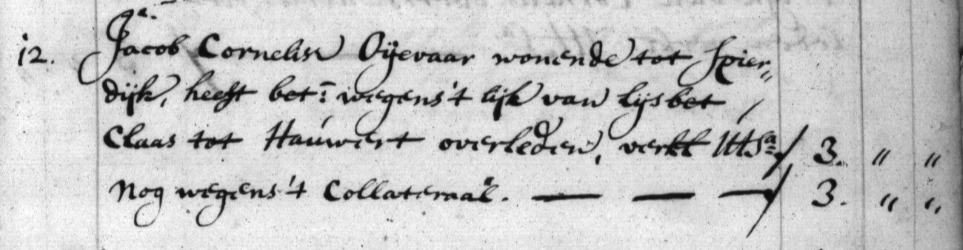 12. Jacob Cornelisz Oÿevaar wonende tot Spier„
dijk, heeft bet: wegens 't lijk van Lijsbet
Claas tot Hauwert overleden, verkl Uts: / 3. „ „
Nog wegens 't Collateraal. — — — / 3. „ „